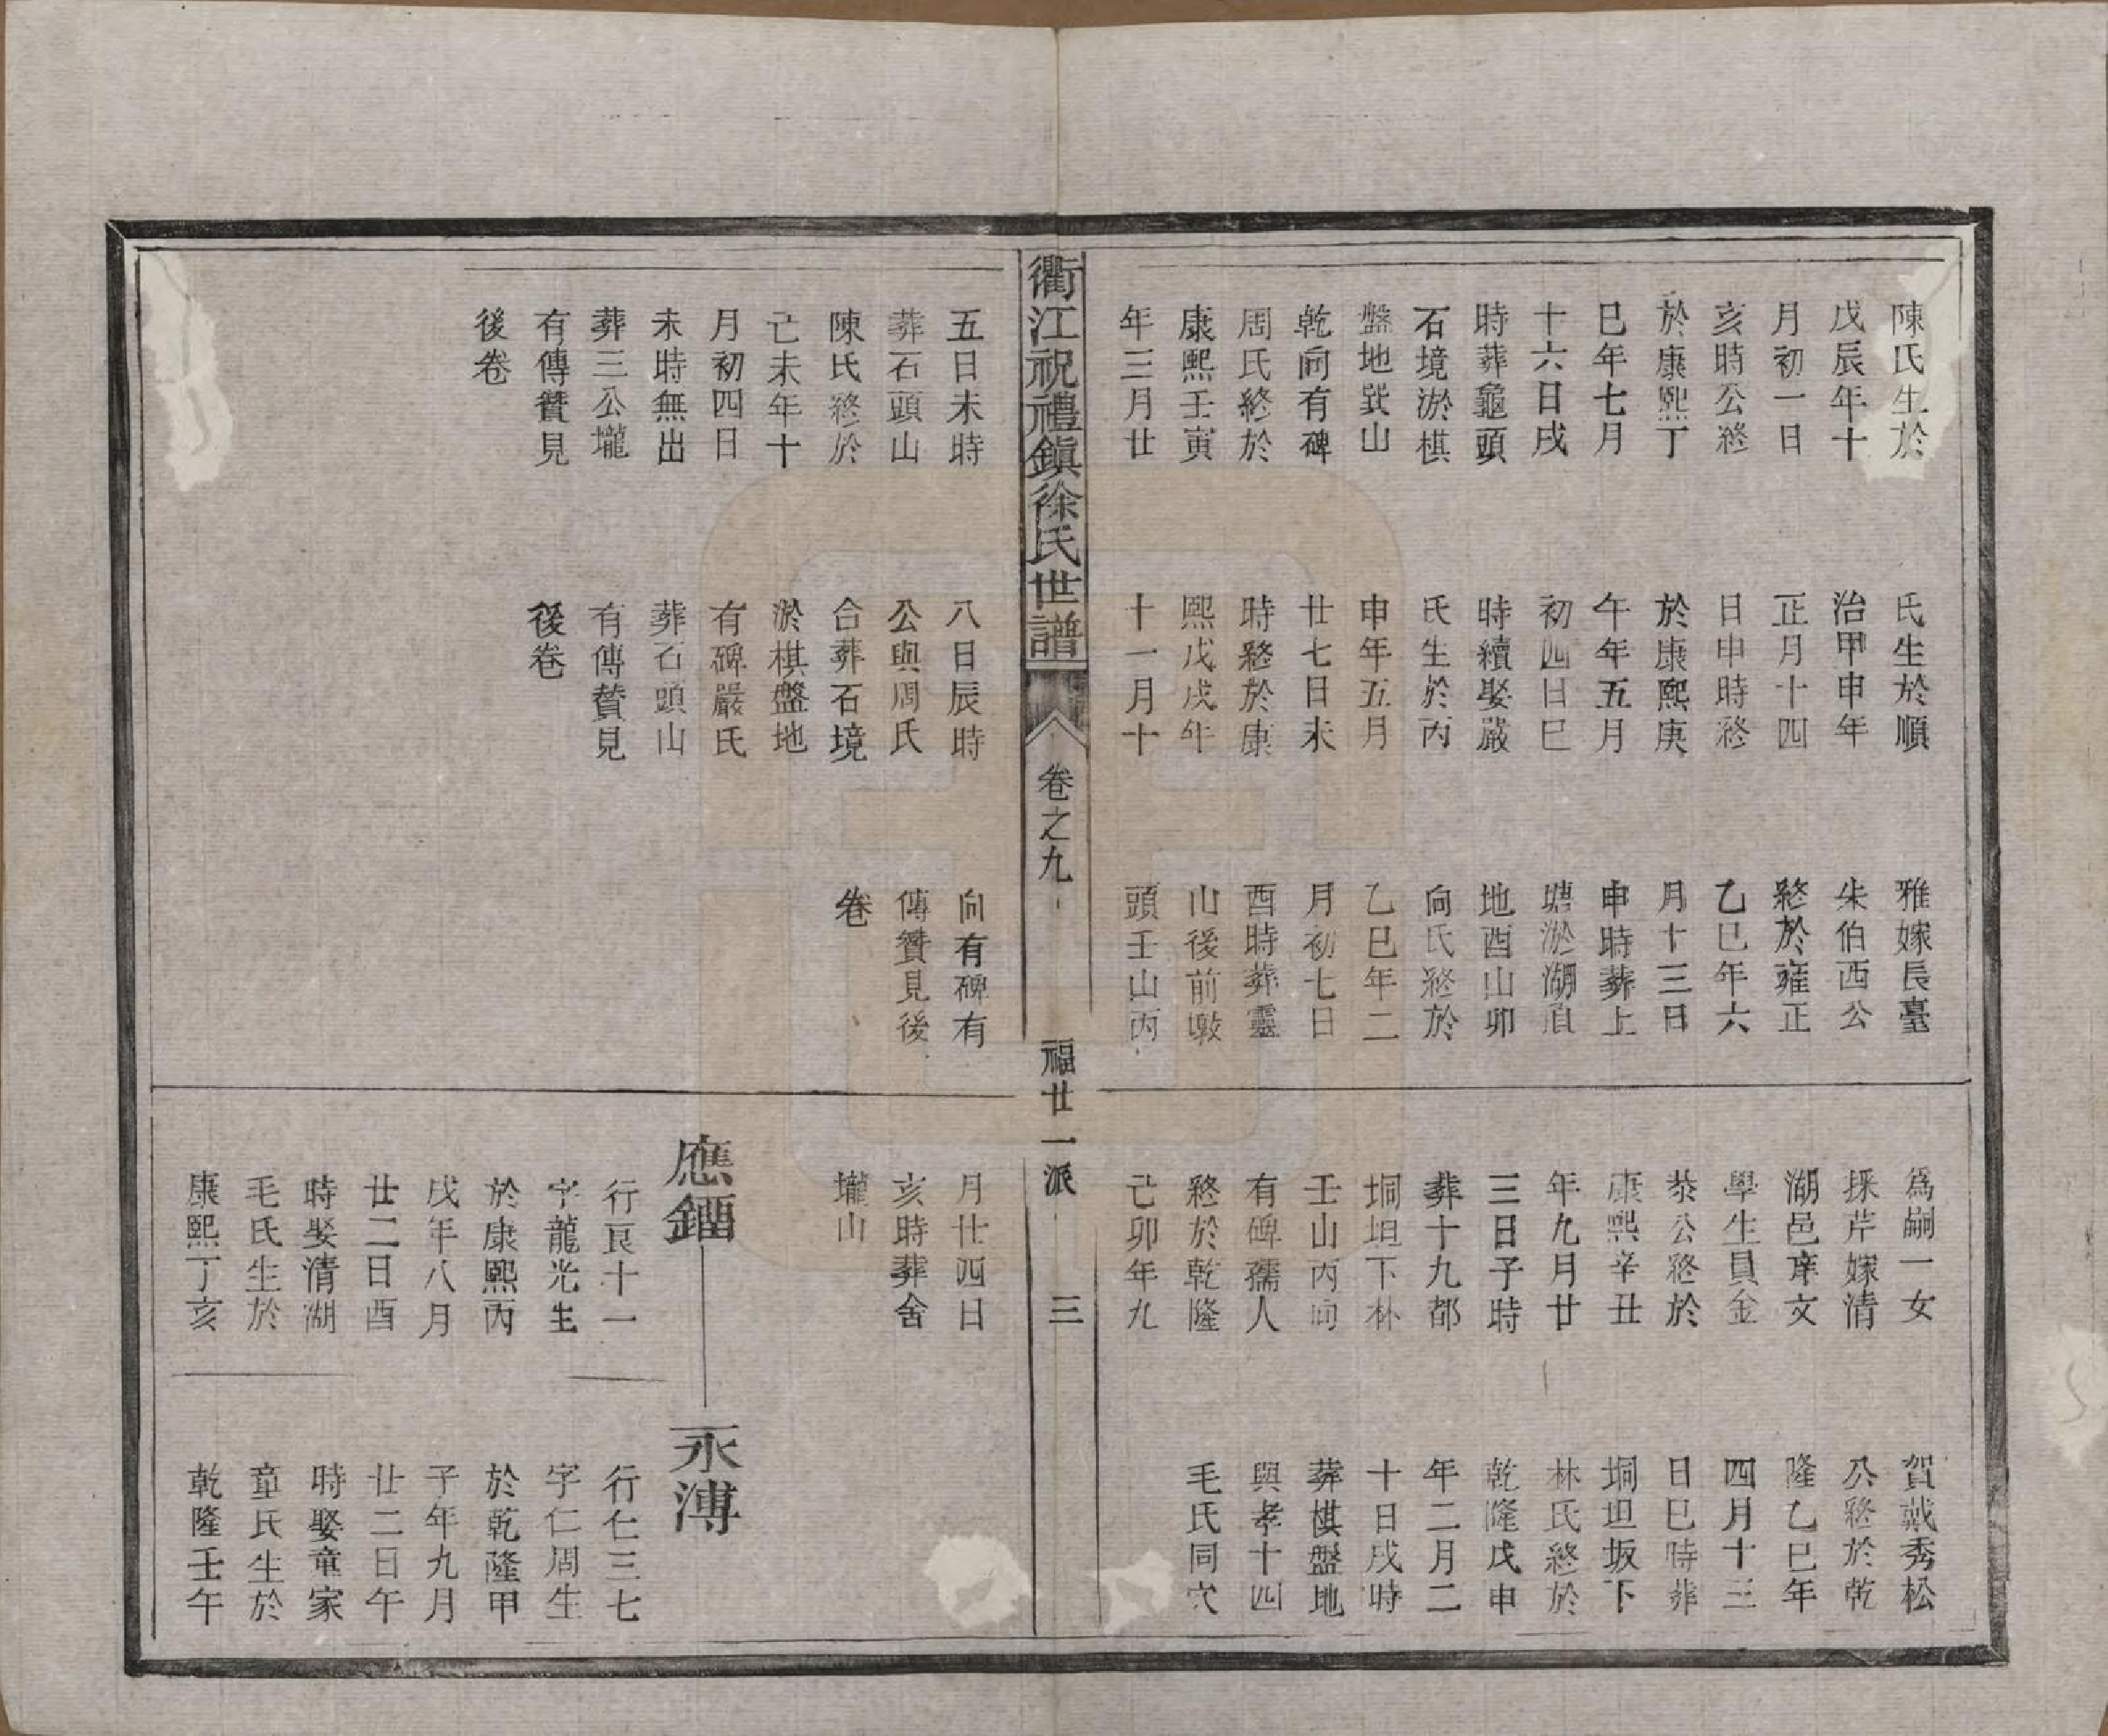 陳氏生於
戊辰年十
月初一日
亥時公終
於康熙丁
巳年七月
十六日戌
時葬龜頭
石境淤棋
盤地巽山
乾向有碑
周氏終於
康熙壬寅
年三月廿
氏生於順
治甲申年
正月十四
日申時終
於康熙庚
午年五月
初四日巳
時續娶嚴
氏生於丙
申年五月
廿七日未
時終於康
熙戊戌年
十一月十
雅嫁長臺
朱伯西公
終於雍正
乙巳年六
月十三日
申時葬上
塘淤湖
地酉山卯
向氏終於
乙巳年二
月初七日
酉時葬靈
山後前墩
頭壬山丙
為嗣一女
採芹嫁清
湖邑庠文
學生員金
恭公終於
康熙辛丑
年九月廿
三日子時
葬十九都
垌坦下林
壬山丙向
有碑孺人
終於乾隆
己卯年九
賀戴秀松
公終於乾
隆乙巳年
四月十三
日巳時葬
垌坦坂下
林氏終於
乾隆戊申
年二月二
十日戌時
葬棋盤地
與孝十四
毛氏同穴
衢江祝禮鎮徐氏世譜
卷之九
福廿一派
三
五日未時
葬石頭山
陳氏終於
己未年十
月初四日
未時無出
葬三公壠
有傳贊見
後卷
八日辰時
公與周氏
合葬石境
淤棋盤地
有碑嚴氏
葬石頭山
有傳贊見
後卷
向有碑有
傳贊見後
卷
月廿四日
亥時葬舍
壠山
應鏂
行艮十一
字龍光生
於康熙丙
戌年八月
廿二日酉
時娶清湖
毛氏生於
康熙丁亥
永溥
行仁三七
字仁周生
於乾隆甲
子年九月
廿二日午
時娶童家
童氏生於
乾隆壬午